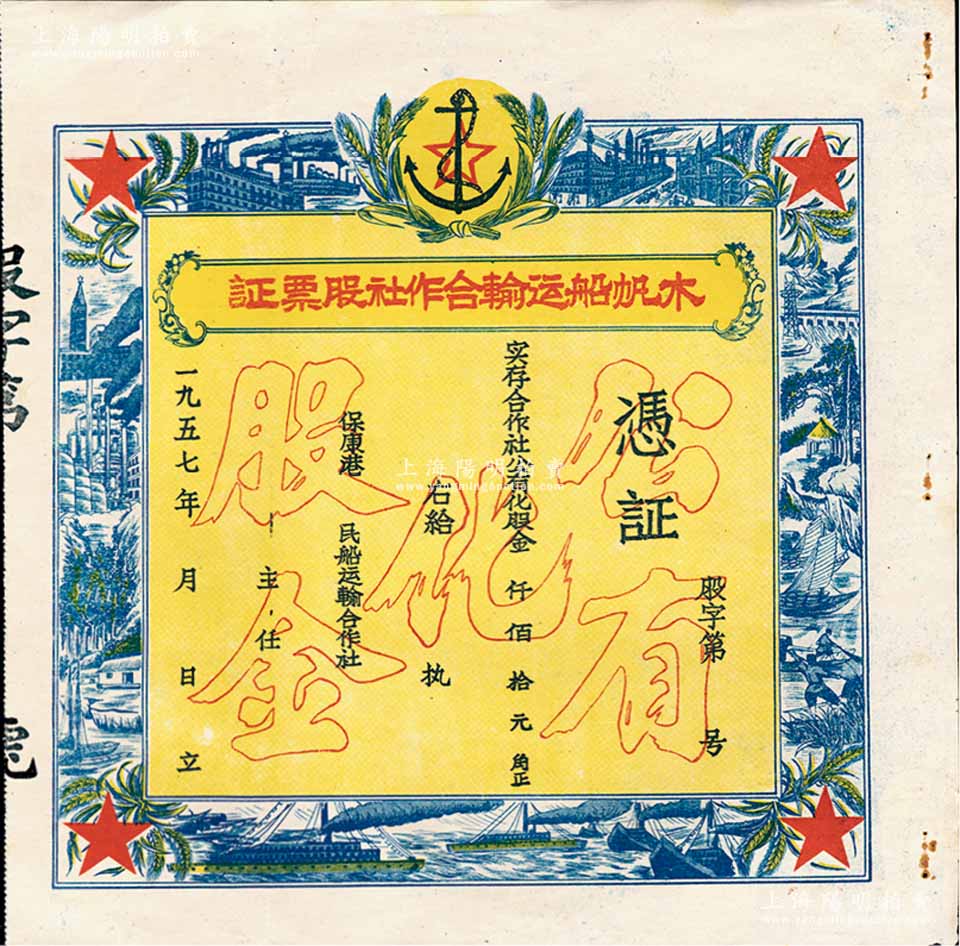 上海陽明拍賣
www.yangmingauction.com
木帆船运輸合作社股票証
憑証
股字第 号
实存合作社公有化股金 仟佰拾元角正
右給 执
保康港 民船运輸合作社
主任
一九五七年 月 日立
公有化股金
股字第 號
上海陽明拍賣
www.yangmingauction.com
上海陽明拍賣
www.yangmingauction.com